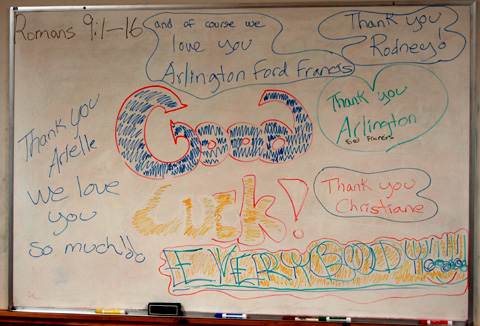 Romans 9:1-16
and of course we
love you
Arlington Ford Francis
Thank you
Rodney!
Thank you
Arlington
Ford Francis
Thank you
Arielle
We love
you
so much!
Good
Luck!
Thank you
Christiane
EVERYBODY!!!!